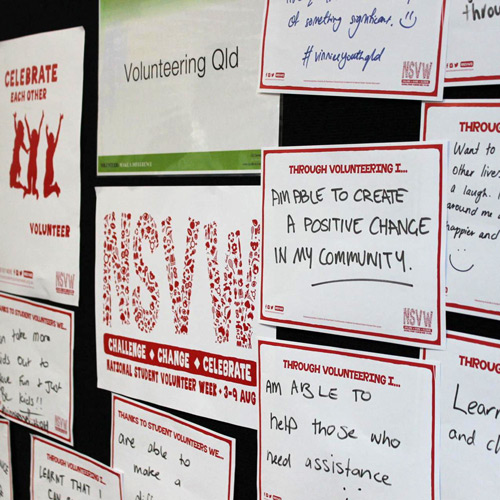 CELEBRATE
EACH OTHER
VOLUNTEER
NSVW
Volunteering Qld
of something significant. :)
#vinniesyouthqld
NSVW
through
NSVW
CHALLENGE ◆ CHANGE ◆ CELEBRATE
NATIONAL STUDENT VOLUNTEER WEEK • 3-9 AUG
THROUGH VOLUNTEERING I...
AM ABLE TO CREATE
A POSITIVE CHANGE
IN MY COMMUNITY.
NSVW
THROUGH
Want to
other lives
a laugh.
around me
happier and
:)
THANKS TO STUDENT VOLUNTEERS WE...
can take more
kids out to
have fun & just
Be kids!!
NSVW
THROUGH VOLUNTEERING I...
LEARNT THAT I
CAN
THANKS TO STUDENT VOLUNTEERS WE...
are able to
make a
THROUGH VOLUNTEERING I...
AM ABLE TO
help those who
need assistance
THROUGH VOLUNTEERING I...
Learn
and